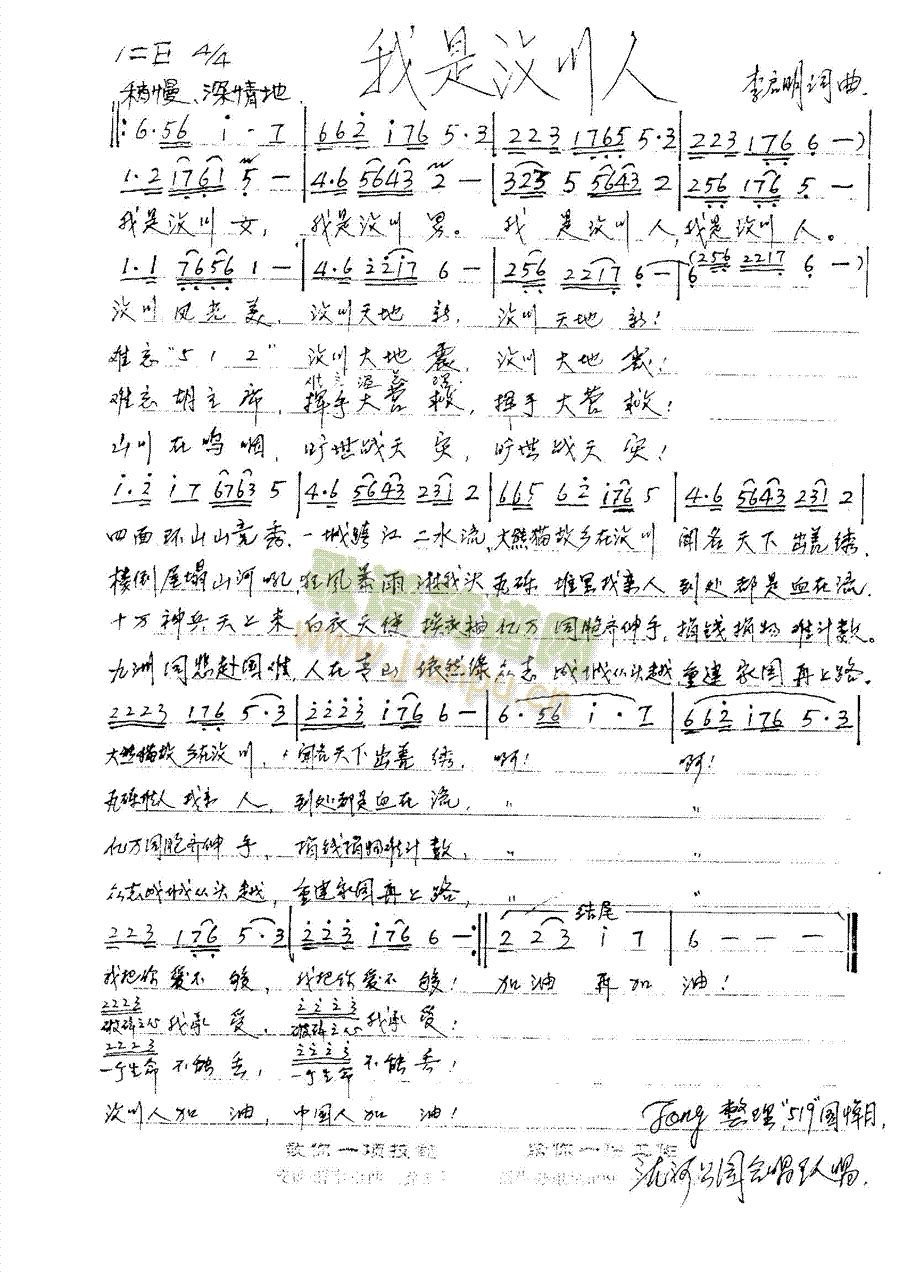 我是汶川人
1=E 4/4
稍慢、深情地
李启明词曲
6·56 i - 7 | 662 176 5·3 | 223 1765 5·3 | 223 176 6 —)
1·2 1761 5 — | 4·6 5643 2 — | 325 5 5643 2 | 256 176 5 —
我是汶川女, 我是汶川男。 我是汶川人,我是汶川人。
1·1 7656 1 — | 4·6 2217 6 — | 256 2217 6 — | 6 (256 2217 6 —)
汶川风光美, 汶川天地新, 汶川天地新!
难忘“512” 汶川大地震, 汶川大地震!
难忘胡主席, 挥手大营救, 挥手大营救!
山川在呜咽, 旷世战天灾, 旷世战天灾!
i·2 i7 6763 5 | 4·6 5643 231 2 | 665 62 i76 5 | 4·6 5643 231 2
四面环山山竞秀、一城跨江二水流,大熊猫故乡在汶川 闻名天下出羌绣.
楼倒屋塌山河吼,狂风暴雨淋我头,瓦砾堆里找亲人 到处都是血在流.
十万神兵天上来 白衣天使 亿万同胞齐伸手,捐钱捐物难计数。
九洲同悲赴国难,人在青山依然绿 众志成城从头越,重建家园再上路。
2223 176 5·3 | 2223 i76 6 — | 6·56 i·7 | 662 i76 5·3
大熊猫故乡在汶川, 闻名天下出羌绣, 啊! 啊!
瓦砾 找亲人, 到处都是血在流, 〃 〃
亿万同胞齐伸手, 捐钱捐物难计数, 〃 〃
众志成城从头越, 重建家园再上路, 〃 〃
结尾
223 176 5·3 | 223 i76 6 — :‖ 2 23 i 7 | 6 — — — ‖
我把你爱不够, 我把你爱不够! 加油再加油!
2223 2223
破碎之心我承受, 破碎之心我承受!
2223 2223
一个生命不能丢, 一个生命不能丢!
汶川人加油, 中国人加油!
整理“519”国悼日,
河公园合唱 人唱.
歌谱简谱网
www.jianpu.cn
教你一项技能